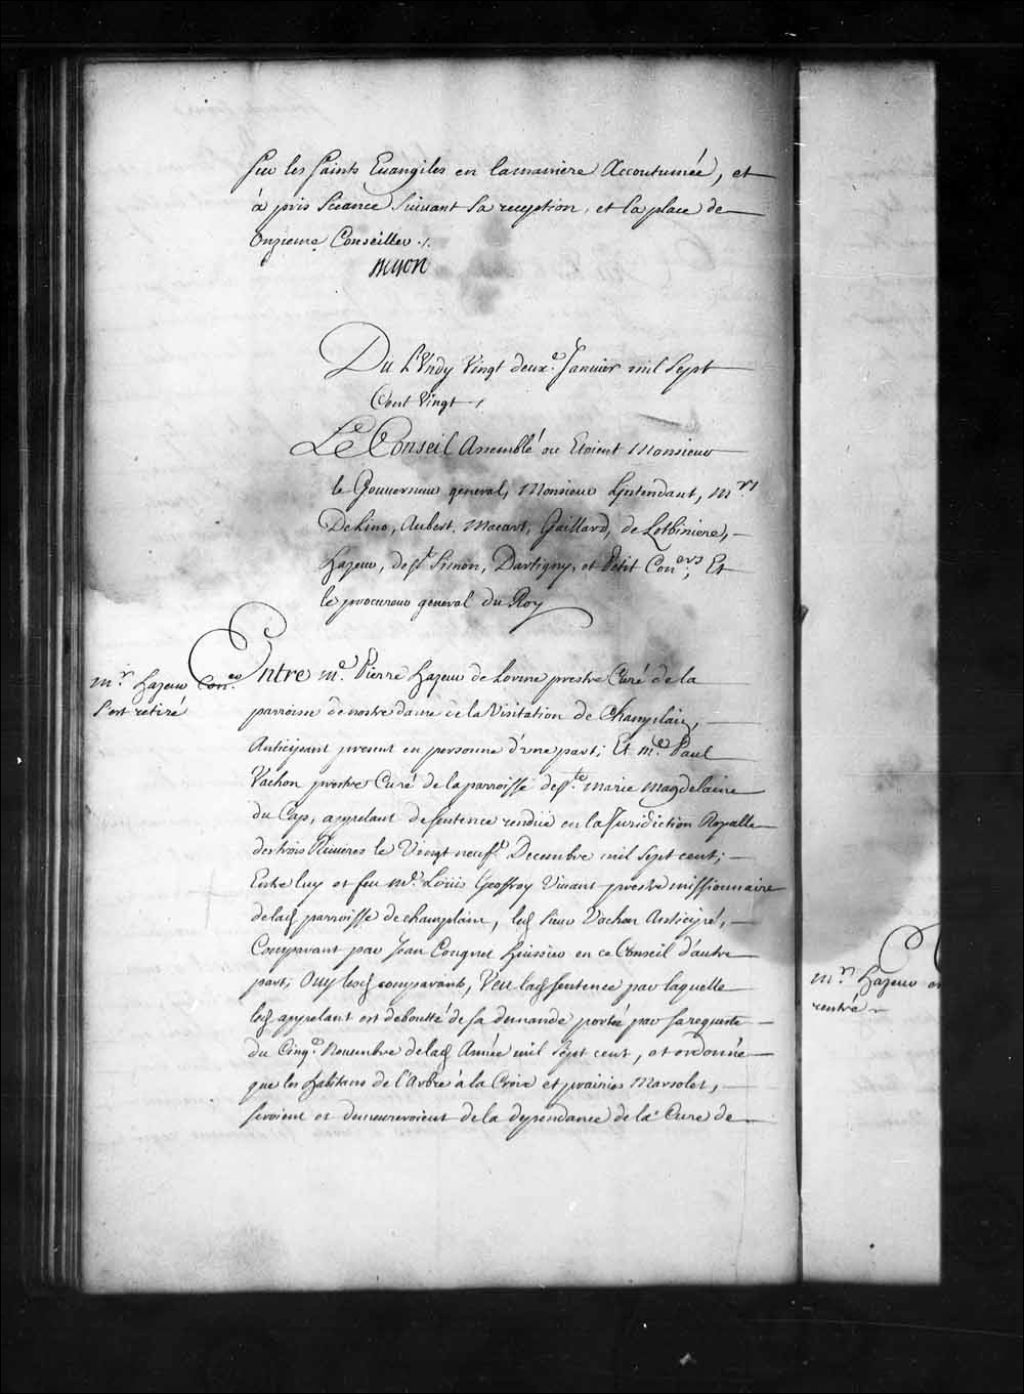 sur les saints Euangiles en la maniere Accoutumée, et
à pris sceance suivant sa reception, et la place de
Onzieme Conseiller ./.
Du Lundy Vingt deuxe. Janvier mil sept
Cent Vingt ./
Le Conseil Assemblé ou Etoient Monsieur
le Gouuerneur general, Monsieur Lintendant, Mrs.
De Lino, Aubert, Macart, Gaillard, de Lotbiniere,
hazeur, de st. Simon, Dartigny, et Petit Coners; Et
le procureur general du Roy
mr. hazeur Coner
s'est retiré
Entre me. Pierre hazeur de Lorme prestre Curé de la
parroisse de nostre dame de la Visitation de Champlain,
Anticipant present en personne d'une part; Et me. Paul
Vachon prestre Curé de la parroisse de ste. Marie Magdelaine
du Cap, appelant de sentence rendüe en la Jurisdiction Royalle
des trois Riuieres le Vingt neufe. Decembre mil sept cent;
Entre luy et feu me. Loüis Geoffroy Viuant prestre missionnaire
de lad parroisse de champlain, led sieur Vachon Anticipé,
Comparant par Jean Congnet huissier en ce Conseil d'autre
part; Ouy lesd comparants, Veu lad sentence par laquelle
led appelant est deboutté de sa demande portée par sa requeste
du Cinqe. Nouembre de lad Année mil sept cent, et ordonné
que les habitans de l'Arbre à la Croix et prairies Marsolet,
seroient et demeureroient de la dependance de la Cure de
mr. hazeur
rentré